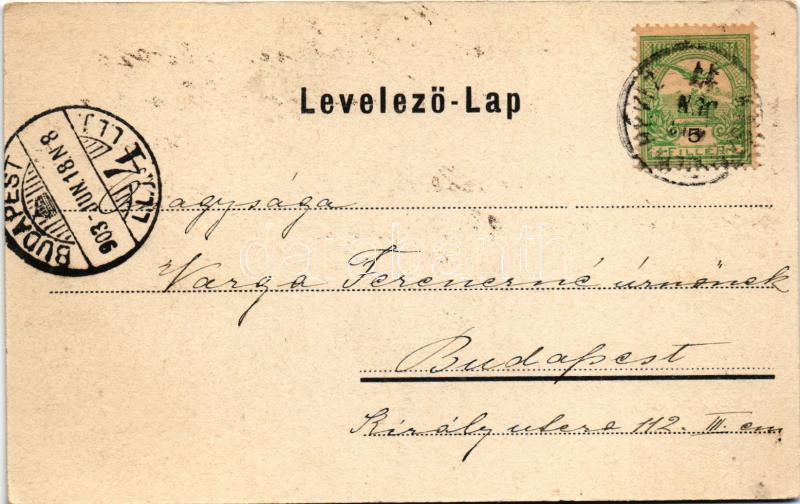 Levelező-Lap
MAGYAR KIR. POSTA
5
FILLÉR
BUDAPEST
903 JUN. 18. N 8
Nagysága
Varga Ferencné úrnőnek
Budapest
Király utcza 112. III. em
darabanth